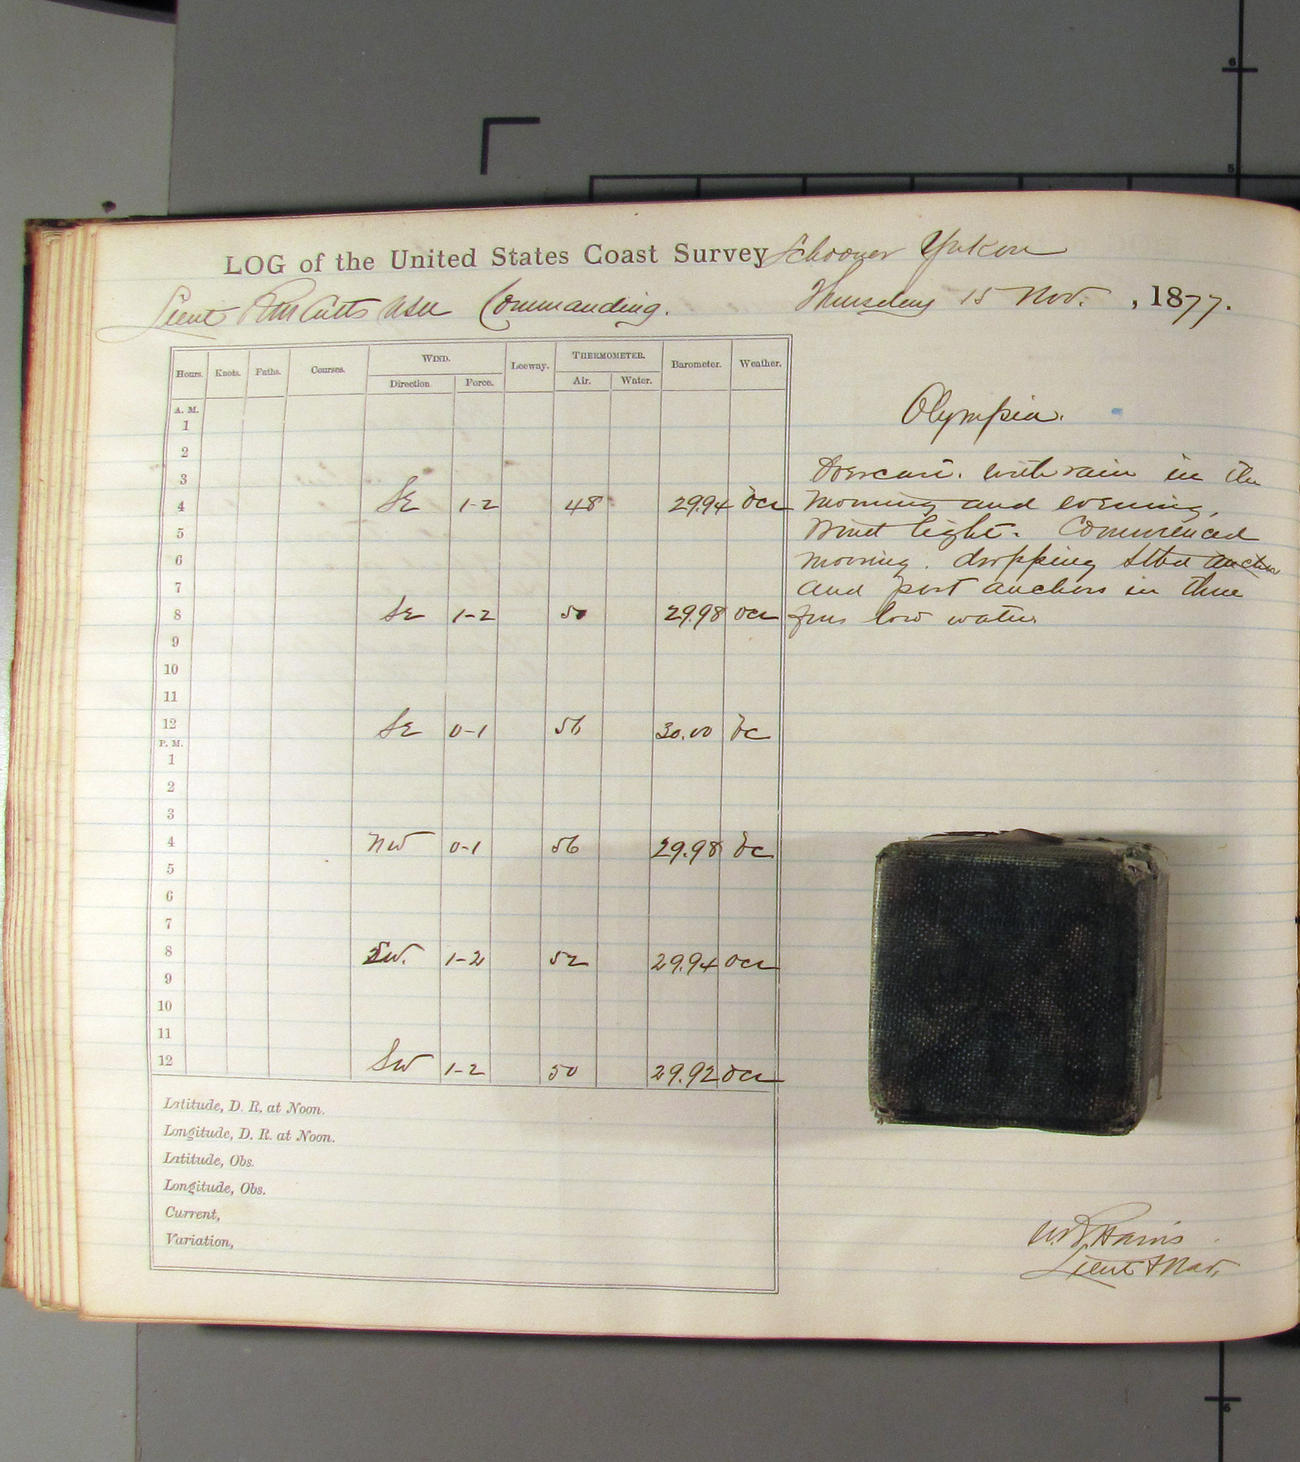 LOG of the United States Coast Survey Schooner Yukon
Lieut R M Cutts USN Commanding. Thursday 15 Nov. , 1877.
Hours. Knots. Faths. Courses. WIND. Direction. Force. Leeway. THERMOMETER. Air. Water. Barometer. Weather.
Olympia.
A. M.
1
2
3
4 SE 1-2 48 29.94 ocr
5
6
7
8 SE 1-2 50 29.98 ocr
9
10
11
12 SE 0-1 56 30.00 oc
P. M.
1
2
3
4 NW 0-1 56 29.98 oc
5
6
7
8 SW. 1-2 52 29.94 ocr
9
10
11
12 SW 1-2 50 29.92 ocr
Overcast. with rain in the
morning and evening,
Wind light. Commenced
mooring. dropping Stbd anchor
and port anchors in three
fms low water
Latitude, D. R. at Noon.
Longitude, D. R. at Noon.
Latitude, Obs.
Longitude, Obs.
Current,
Variation,
Harris
Lieut & Nav.
6
5
6